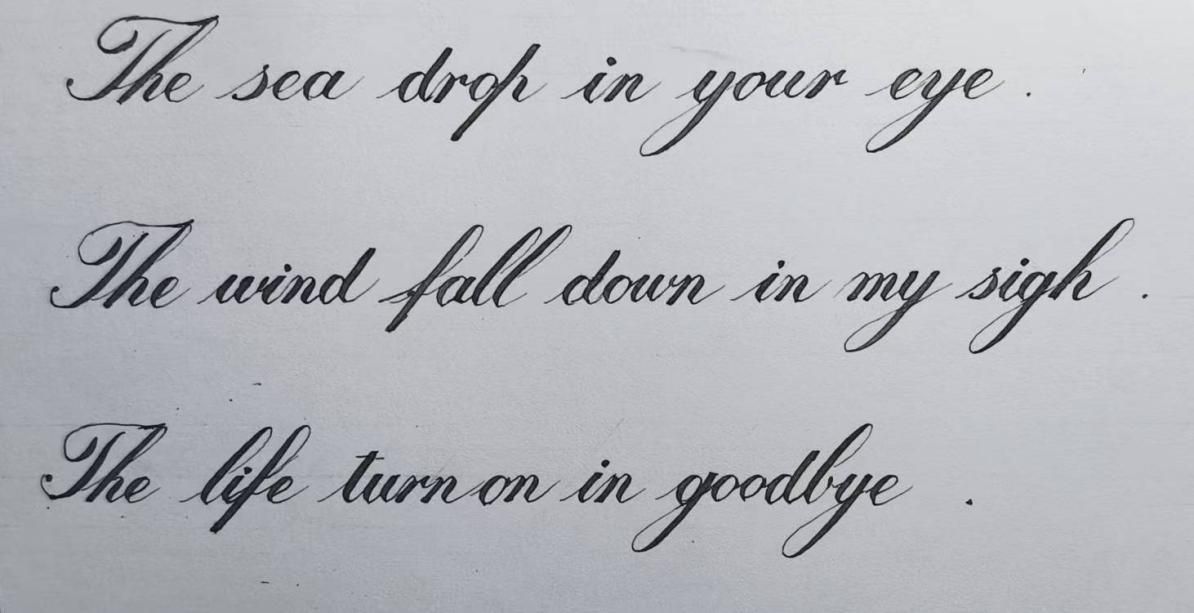 The sea drop in your eye .
The wind fall down in my sigh .
The life turn on in goodbye .